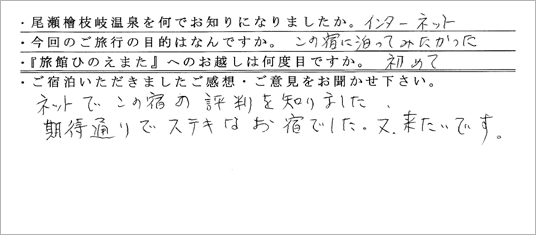 ・尾瀬檜枝岐温泉を何でお知りになりましたか。インターネット
・今回のご旅行の目的はなんですか。この宿に泊ってみたかった
・『旅館ひのえまた』へのお越しは何度目ですか。初めて
・ご宿泊いただきましたご感想・ご意見をお聞かせ下さい。
ネットでこの宿の評判を知りました、
期待通りでステキなお宿でした。又、来たいです。